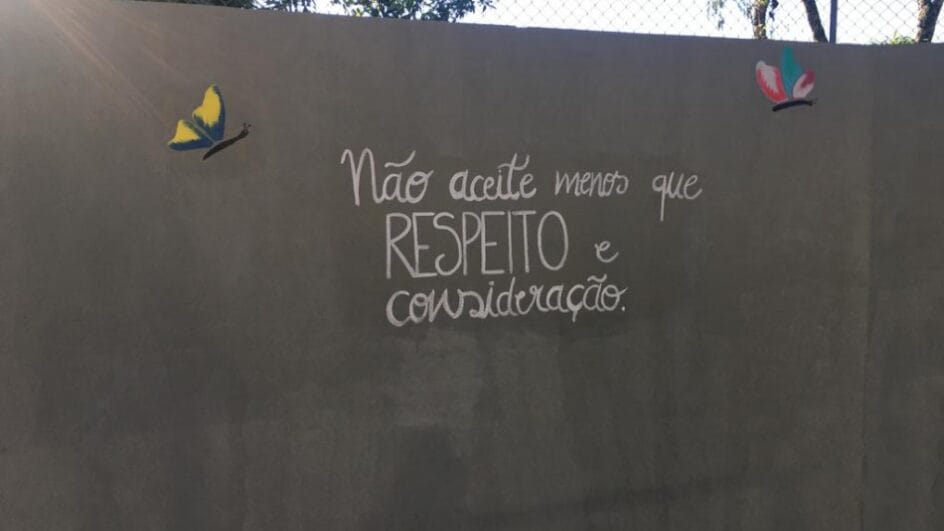 Não aceite menos que
RESPEITO e
consideração.